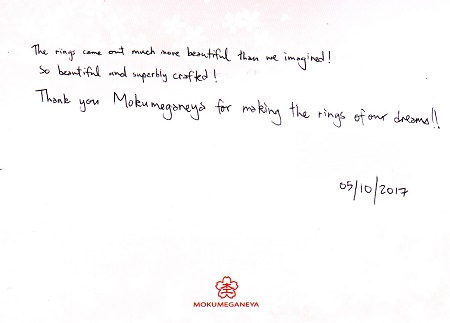 The rings came out much more beautiful than we imagined!
So beautiful and superbly crafted!
Thank you Mokumeganeya for making the rings of our dreams!!
05/10/2017
MOKUMEGANEYA